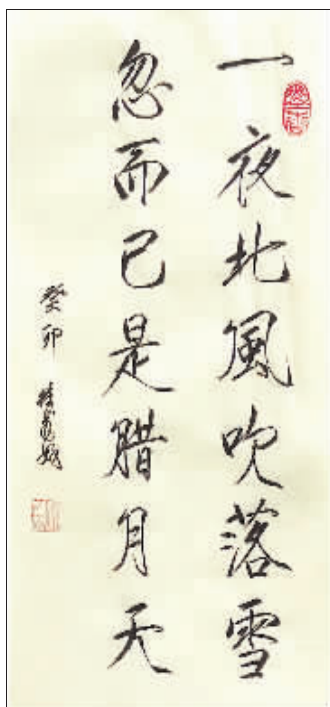 一夜北風吹落雪
忽而已是腊月天
癸卯